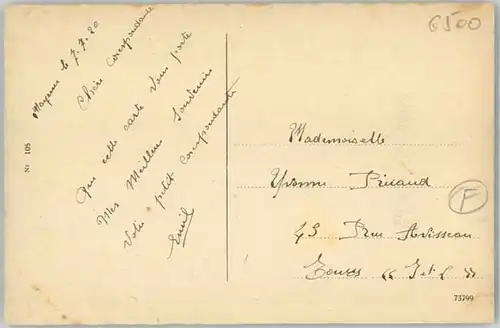 6500
Mayence le 7.7.20
Chère Correspondante
Que cette carte Vous porte
Mes Meilleur Souvenirs
Votre petit Corespondante
Emil
Nr 105
Mademoiselle
Yvonne Ricaud
F
43 Rue Avisseau
Tours " I et L "
73799